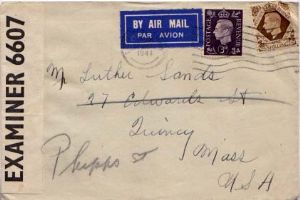 EXAMINER 6607
BY AIR MAIL
PAR AVION
POSTAGE
REVENUE
3D
Mr Luther Sands
27 Edwards St
Quincy
Mass
USA
Phipps St